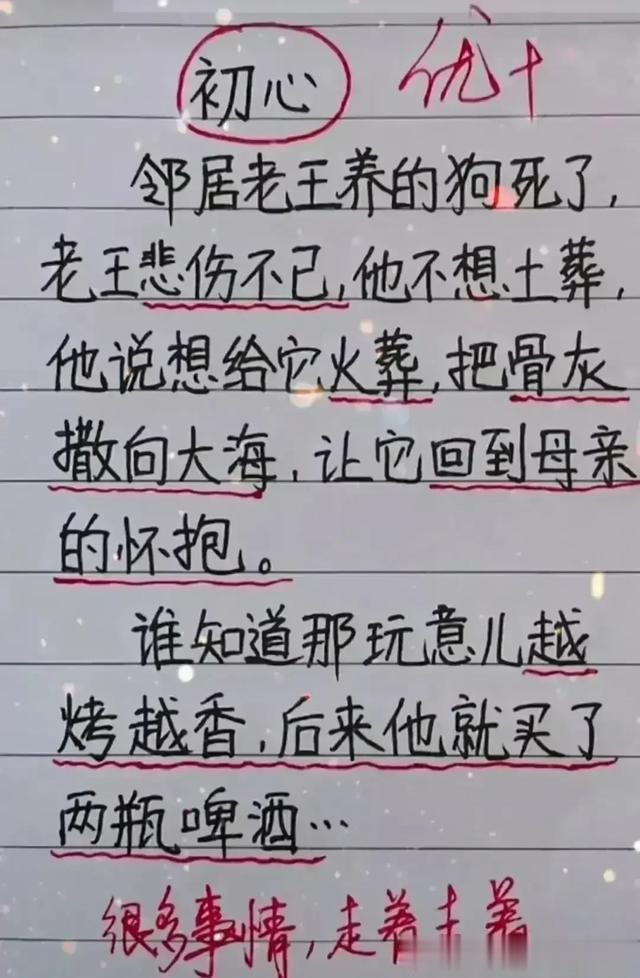 初心 优+
邻居老王养的狗死了,
老王悲伤不已,他不想土葬,
他说想给它火葬,把骨灰
撒向大海,让它回到母亲
的怀抱。
谁知道那玩意儿越
烤越香,后来他就买了
两瓶啤酒…
很多事情,走着走着